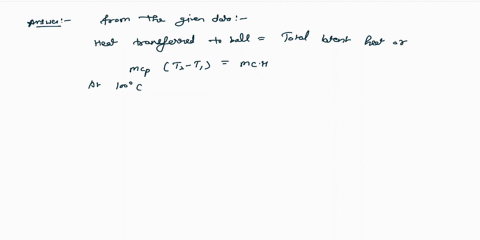 Answer:- from the given data:-
Heat transferred to ball = Total latent heat or
mcp (T2-T1) = mc.H
At 100°C